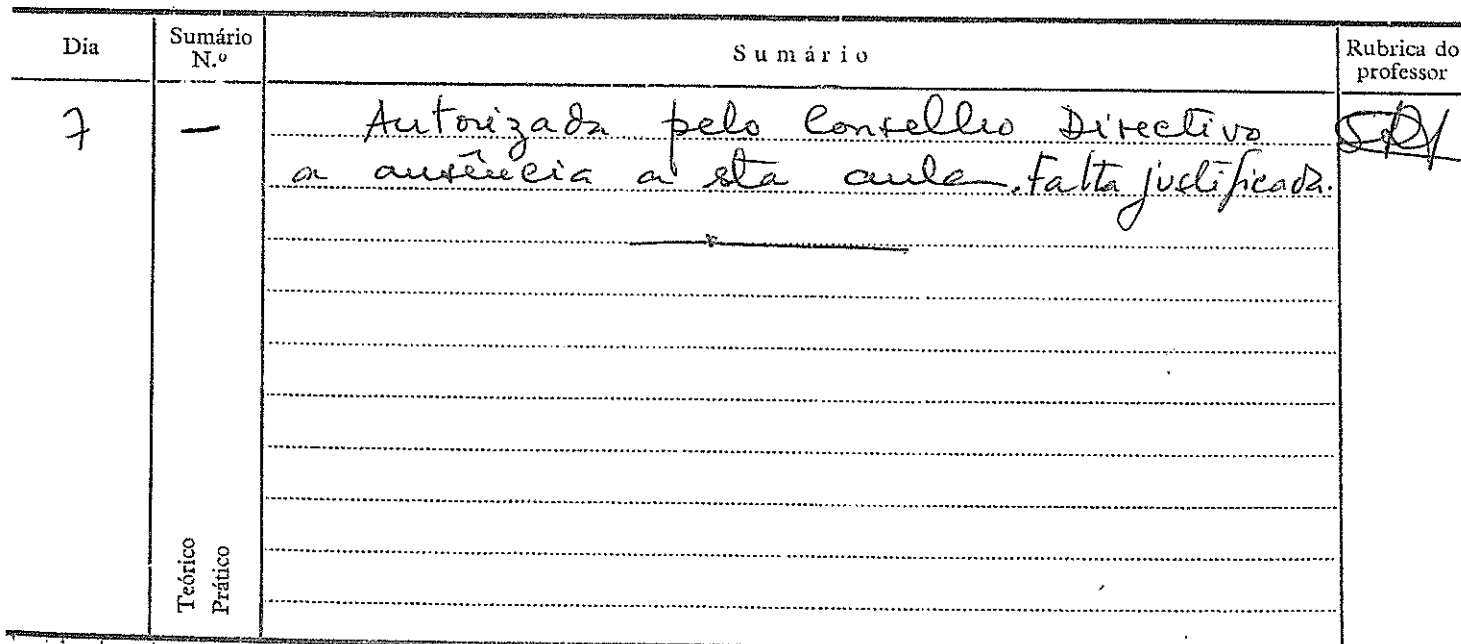 Dia
Sumário N.º
Sumário
Rubrica do professor
7 — Autorizada pelo Conselho Directivo
a ausência a esta aula. Falta justificada.
Teórico
Prático